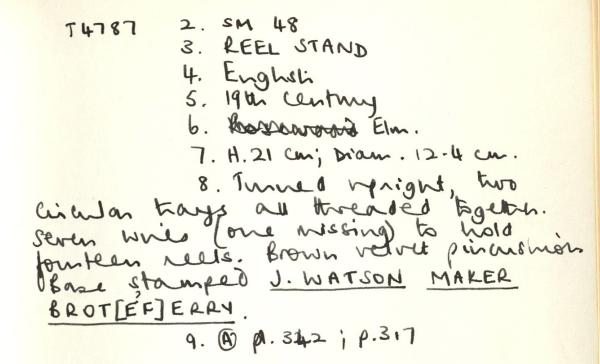 T4787 2. SM 48
3. REEL STAND
4. English
5. 19th Century
6. Rosewood Elm.
7. H. 21 cm; Diam. 12.4 cm.
8. Turned upright, two
circular trays all threaded together.
Seven wires (one missing) to hold
fourteen reels. Brown velvet pincushion
Base stamped J. WATSON MAKER
BROT[E,F]ERRY.
9. Ⓐ pl. 342; p. 317